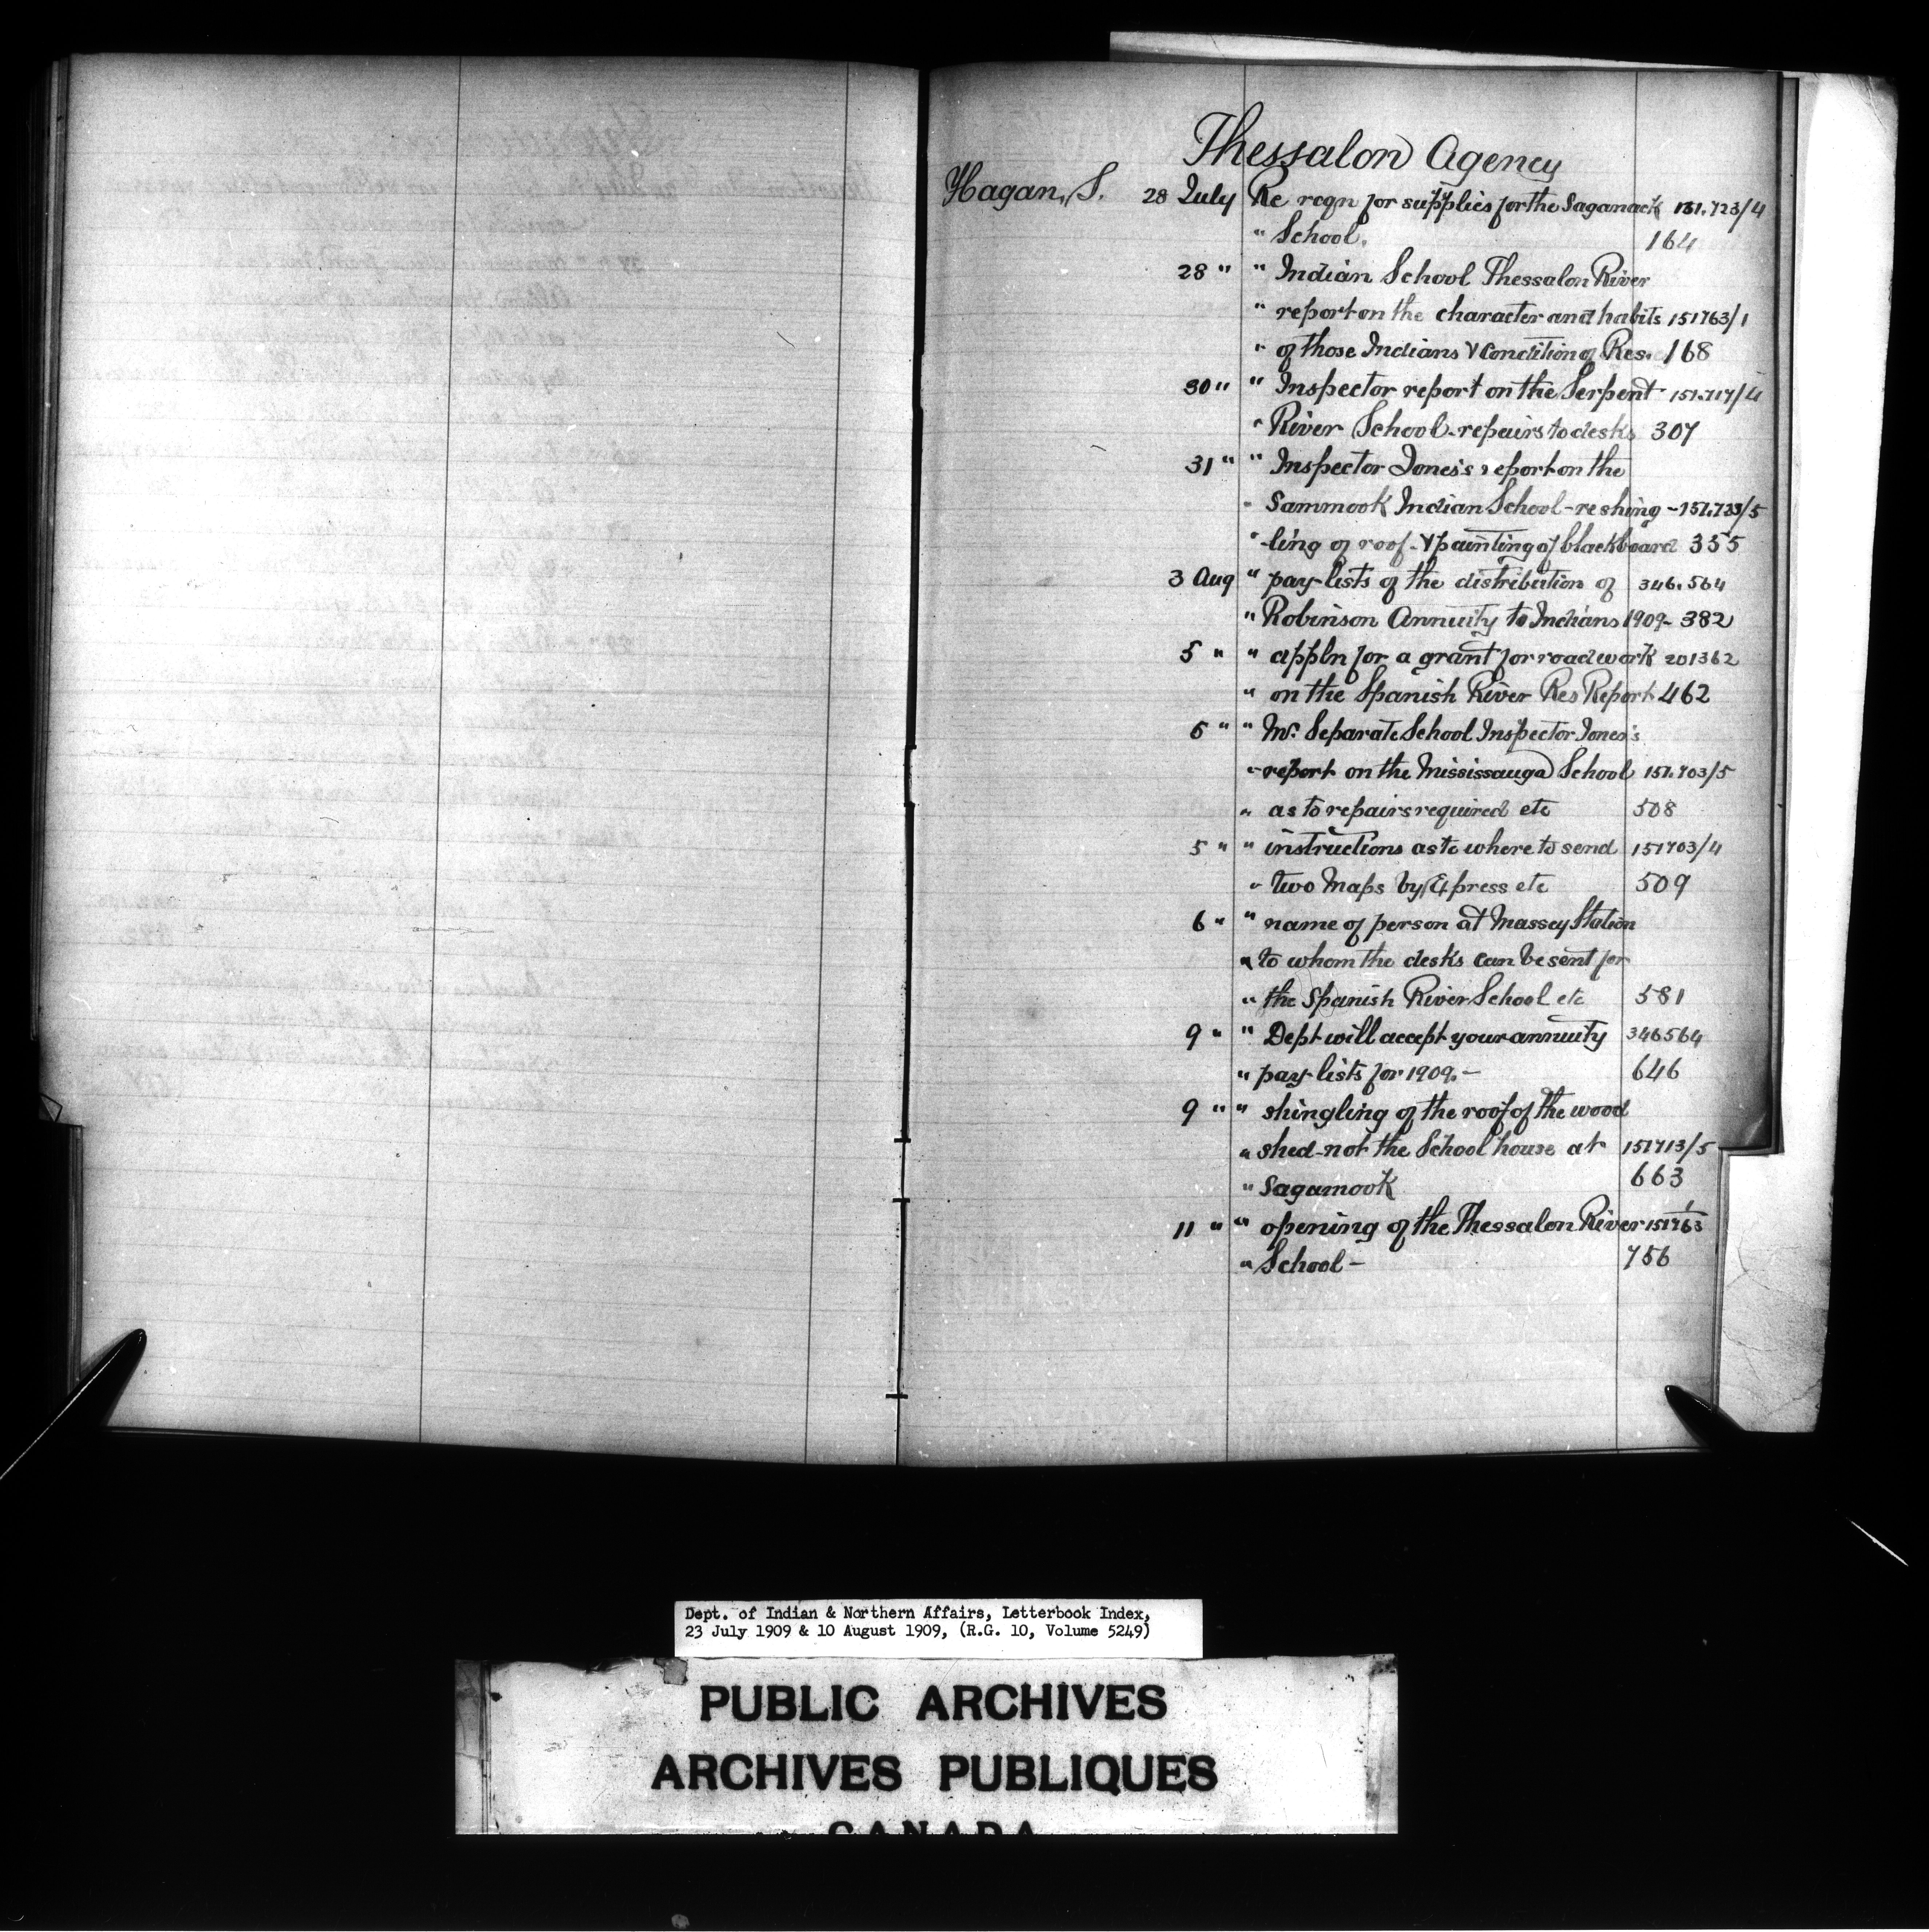 Thessalon Agency
Hagan, S. 28 July Re reqn for supplies for the Saganack 151.723/4
" School. 164
28 " " Indian School Thessalon River
" report on the character and habits 151763/1
" of those Indians & condition of Res. 168
30 " " Inspector report on the Serpent 151.717/4
" River School - repairs to desks 307
31 " " Inspector Jones's report on the
" Sammook Indian School - re shing - 151.723/5
" -ling of roof - & painting of blackboard 355
3 Aug " pay-lists of the distribution of 346.564
" Robinson Annuity to Indians 1909 - 382
5 " " appln for a grant for road work 201362
" on the Spanish River Res Report 462
5 " " Mr. Separate School Inspector Jones's
" report on the Mississauga School 151.703/5
" as to repairs required etc 508
5 " " instructions as to where to send 151703/4
" two Maps by Express etc 509
6 " " name of person at Massey Station
" to whom the desks can be sent for
" the Spanish River School etc 581
9 " " Dept will accept your annuity 346564
" pay-lists for 1909. - 646
9 " " shingling of the roof of the wood
" shed - not the School house at 151713/5
" Sagamook 663
11 " " opening of the Thessalon River 151763/1
" School - 756
Dept. of Indian & Northern Affairs, Letterbook Index,
23 July 1909 & 10 August 1909, (R.G. 10, Volume 5249)
PUBLIC ARCHIVES
ARCHIVES PUBLIQUES
CANADA